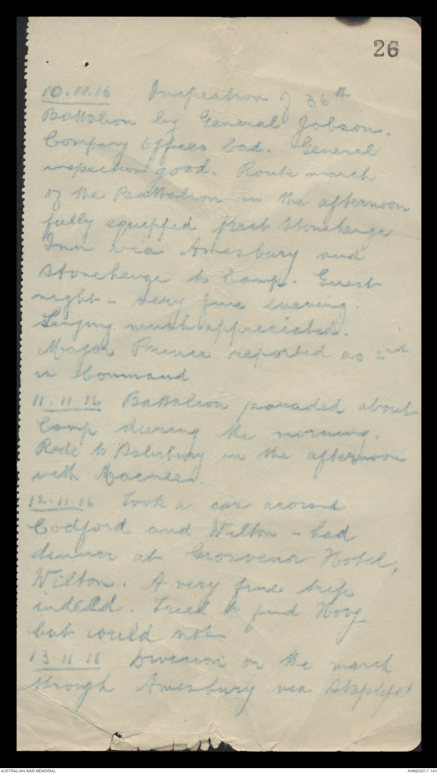 26
10.11.16 Inspection of 36th
Battalion by General Jobson.
Company Offices bad. General
inspection good. Route march
of the Battalion in the afternoon
fully equipped past Stonehenge
Inn via Amesbury and
Stonehenge to Camp. Guest
night - very fine evening.
Singing much appreciated.
Major Prince reported as 2nd
in Command
11.11.16 Battalion paraded about
Camp during the morning.
Rode to Salisbury in the afternoon
with
12.11.16 Took a car around
Codford and Wilton - had
dinner at Grosvenor Hotel,
Wilton. A very fine trip
indeed. Tried to find Roy
but could not
13.11.16 Division on the march
through Amesbury via
AUSTRALIAN WAR MEMORIAL